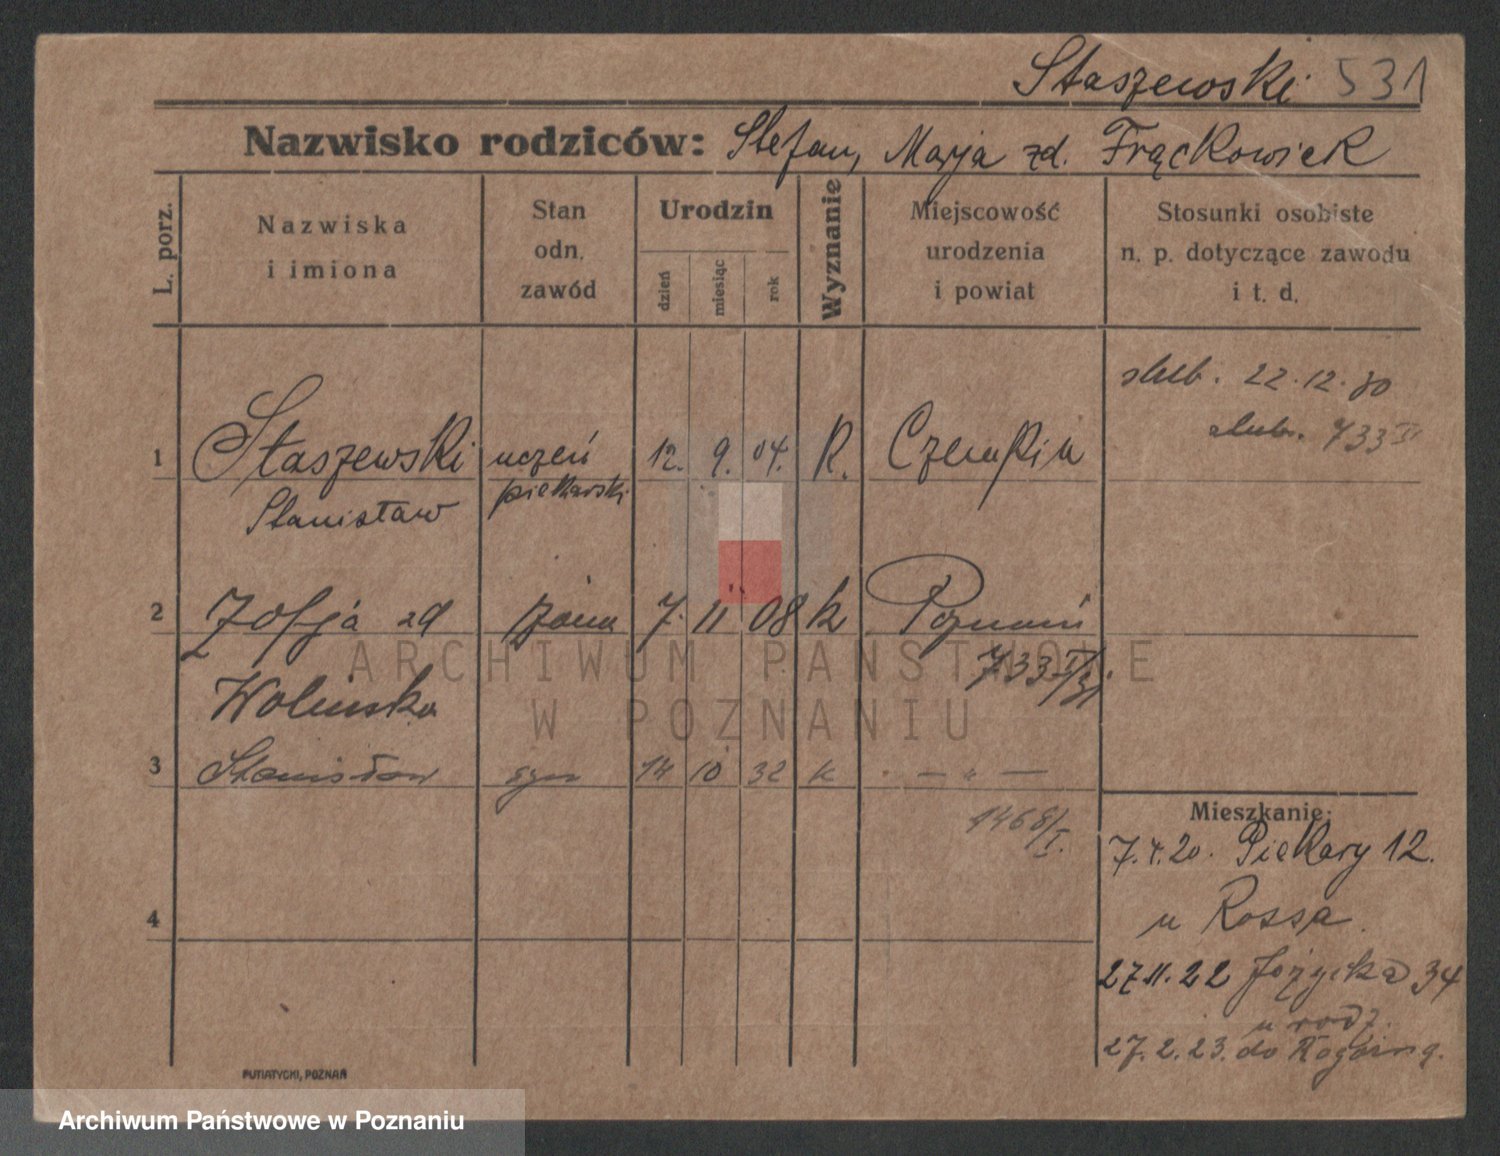 Staszewski 531
Nazwisko rodziców: Stefan, Marja zd. Frąckowiek
L. porz.
Nazwiska
i imiona
Stan
odn.
zawód
Urodzin
dzień
miesiąc
rok
Wyznanie
Miejscowość
urodzenia
i powiat
Stosunki osobiste
n. p. dotyczące zawodu
i t. d.
ślub. 22.12.30
ślub. 733 II
1 Staszewski uczeń 12. 9. 04. R. Czempiń
Stanisław piekarski
2 Zofja zd żona 7. 11 08 k Poznań
733 I/31
Wolińska
3 Stanisław syn 14 10 32 k — " —
1468/I.
4
Mieszkanie:
7.4.20. Piekary 12.
u Rossa.
27.11.22 Łożycka 34
u rodz.
27.2.23. do
PUTIATYCKI, POZNAŃ
ARCHIWUM PAŃSTWOWE
W POZNANIU
Archiwum Państwowe w Poznaniu